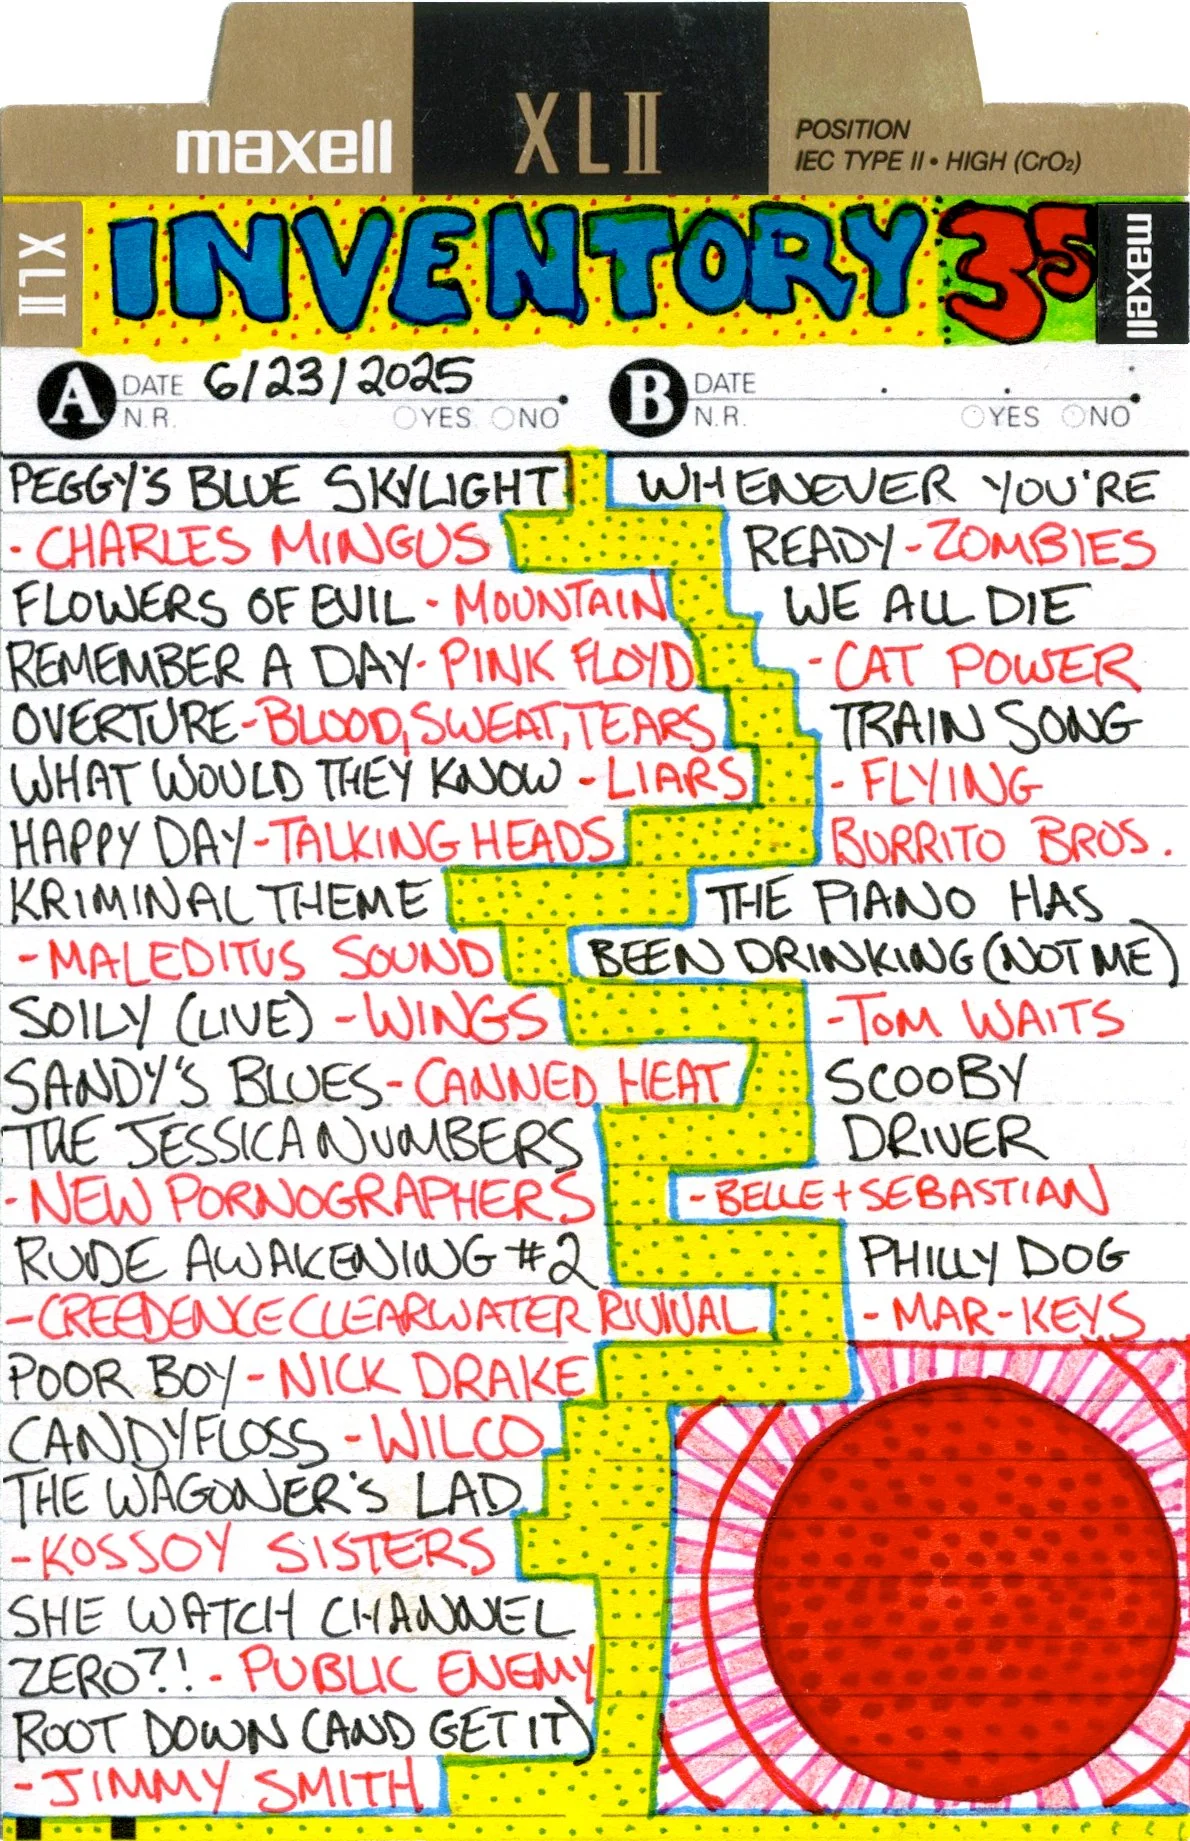 maxell
XLII
POSITION
IEC TYPE II • HIGH (CrO₂)
XLII
INVENTORY 35
maxell
A DATE 6/23/2025
N.R. YES NO
B DATE
N.R. YES NO
PEGGY'S BLUE SKYLIGHT
- CHARLES MINGUS
FLOWERS OF EVIL - MOUNTAIN
REMEMBER A DAY - PINK FLOYD
OVERTURE - BLOOD, SWEAT, TEARS
WHAT WOULD THEY KNOW - LIARS
HAPPY DAY - TALKING HEADS
KRIMINAL THEME
- MALEDITUS SOUND
SOILY (LIVE) - WINGS
SANDY'S BLUES - CANNED HEAT
THE JESSICA NUMBERS
- NEW PORNOGRAPHERS
RUDE AWAKENING #2
- CREEDENCE CLEARWATER RIVIVAL
POOR BOY - NICK DRAKE
CANDYFLOSS - WILCO
THE WAGONER'S LAD
- KOSSOY SISTERS
SHE WATCH CHANNEL
ZERO?! - PUBLIC ENEMY
ROOT DOWN (AND GET IT)
- JIMMY SMITH
WHENEVER YOU'RE
READY - ZOMBIES
WE ALL DIE
- CAT POWER
TRAIN SONG
- FLYING
BURRITO BROS.
THE PIANO HAS
BEEN DRINKING (NOT ME)
- TOM WAITS
SCOOBY
DRIVER
- BELLE + SEBASTIAN
PHILLY DOG
- MAR-KEYS